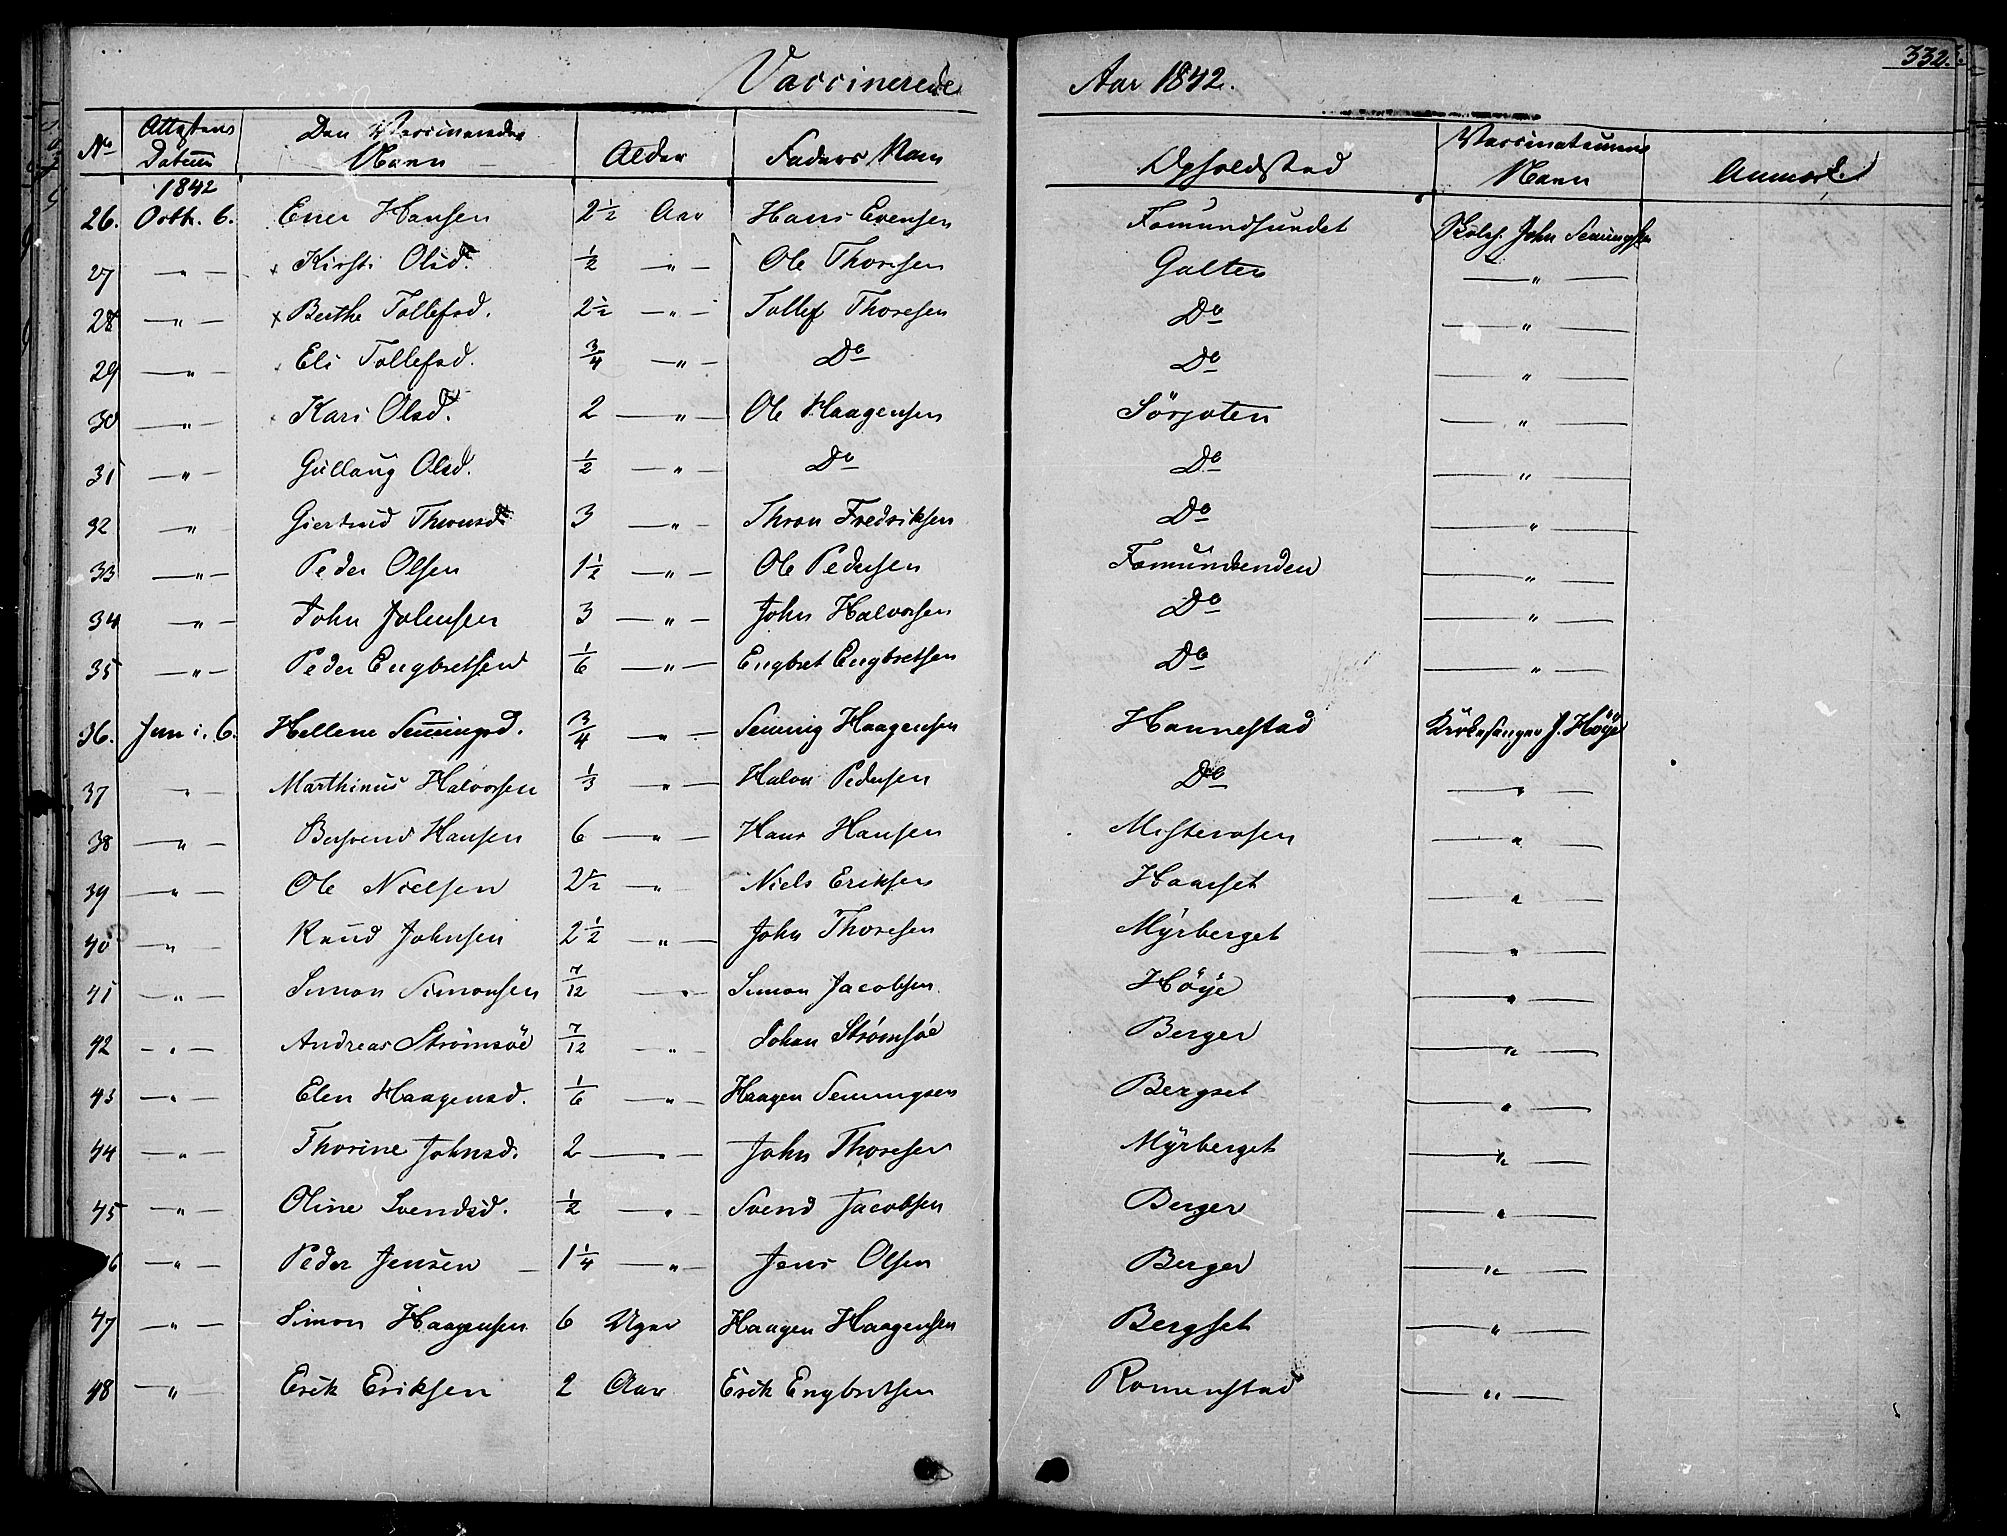 332.
Vaccinerede Aar 1842.
No Attestens Datum Den Vaccineredes Navn Alder Faders Navn Opholdsted Vaccinateurens Navn Anmærk.
1842
26. Octb. 6. Even Hansen 2 1/2 Aar Hans Evensen Fæmundsundet Skolej. John Semingsen
27 — " — × Kirsti Olsd. 1/2 — " — Ole Thoresen Galten — " —
28 — " — × Berthe Tollefsd. 2 1/2 — " — Tollef Thoresen Do — " —
29 — " — Eli Tollefsd. 3/4 — " — Do Do — " —
30 — " — Kari Olsd. 2 — " — Ole Haagensen Sörjoten — " —
31 — " — Gullaug Olsd. 1/2 — " — Do Do — " —
32 " Giertrud Thronsd. 3 — " — Thron Fredriksen Do — " —
33 — " — Peder Olsen 1 1/2 — " — Ole Pedersen Fæmundenden — " —
34 — " — John Johnsen 3 — " — John Halvorsen Do — " —
35 — " — Peder Engbretsen 1/6 — " — Engbret Engbretsen Do — " —
36. Juni. 6. Hellene Semingsd. 3/4 — " — Seming Haagensen Hannestad Kirkesanger J. Höye
37 " Marthinus Halvorsen 1/3 — " — Halvor Pedersen Do — " —
38 — " — Bersvend Hansen 6 — " — Hans Hansen Misterosen — " —
39 — " — Ole Nielsen 2 1/2 — " — Niels Eriksen Haarset — " —
40 — " Knud Johnsen 2 1/2 — " — John Thoresen Myrberget — " —
41 — " — Simon Simonsen 7/12 — " — Simon Jacobsen Höye — " —
42 — " — Andreas Strømsöe 7/12 — " — Johan Strømsöe Berger — " —
43 — " — Elen Haagensd. 1/6 — " — Haagen Semingsen Bergset — " —
44 — " — Thorine Johnsd. 2 — " — John Thoresen Myrberget — " —
45 — " — Oline Svendsd. 1/2 — " — Svend Jacobsen Berger — " —
46 — " — Peder Jensen — 1 1/4 — " — Jens Olsen Berger — " —
47 — " — Simon Haagensen 6 Uger Haagen Haagensen Bergset — " —
48 — " — Erik Eriksen 2 Aar Erik Engbretsen Romenstad — " —